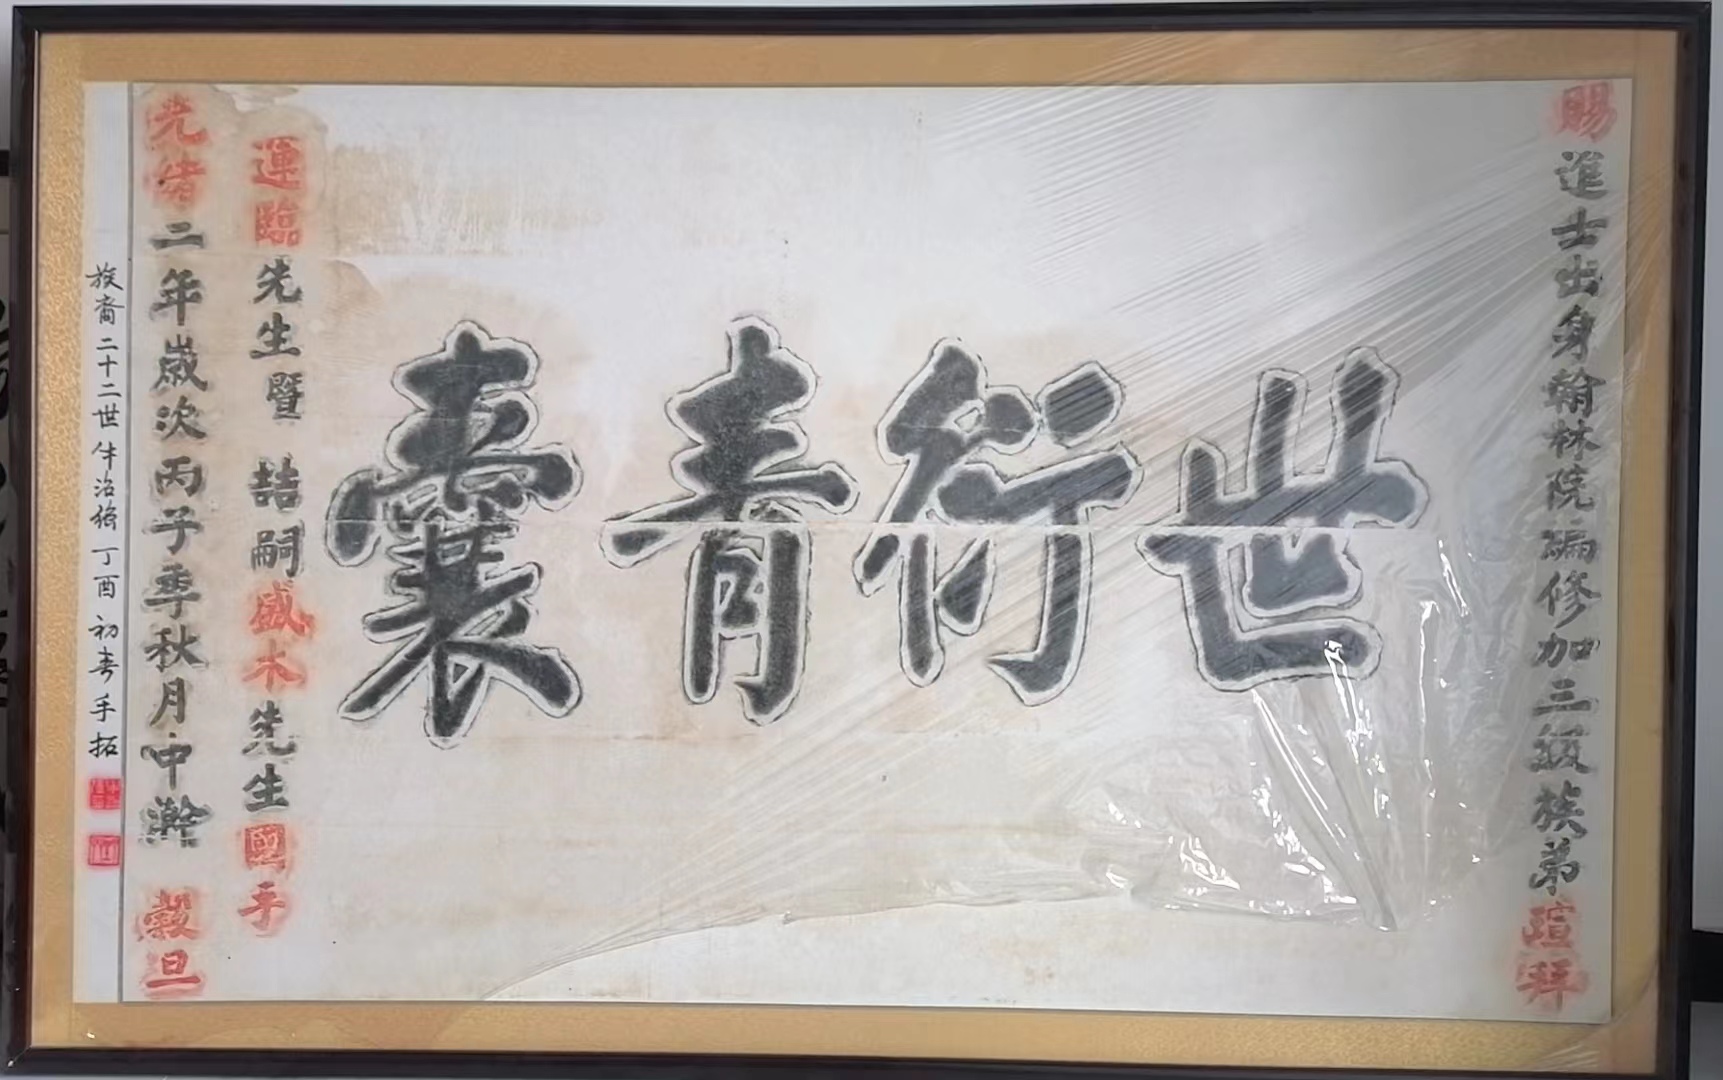 賜進士出身翰林院編修加三級族弟瑄拜
世衍青囊
運臨先生暨喆嗣盛木先生國手
光緒二年歲次丙子季秋月中澣穀旦
族裔二十二世牛治緒丁酉初春手拓